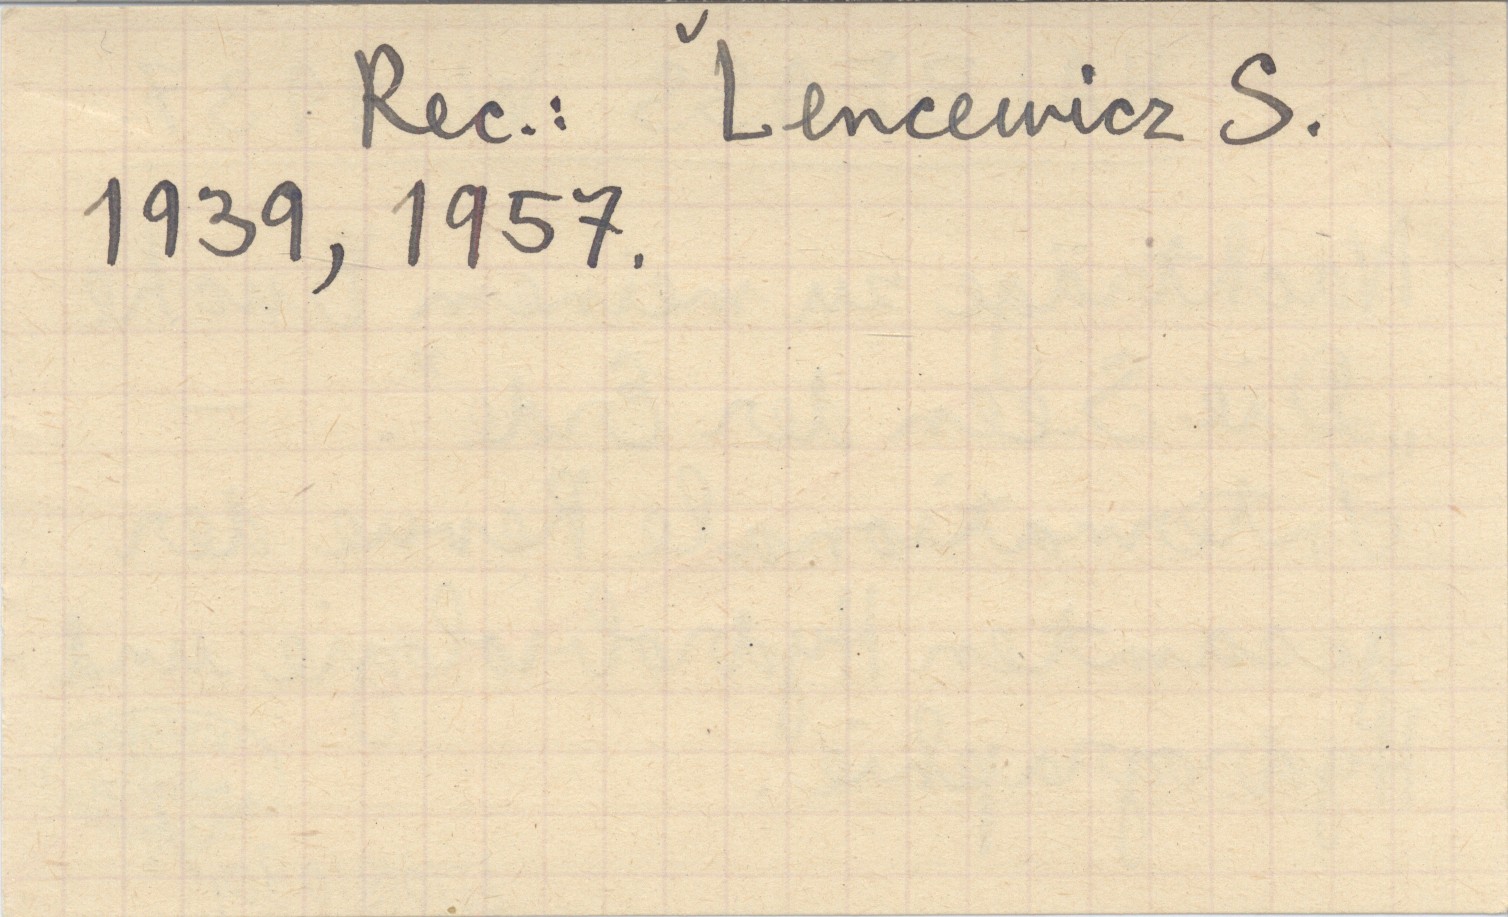 Rec.: Lencewicz S.
1939, 1957.